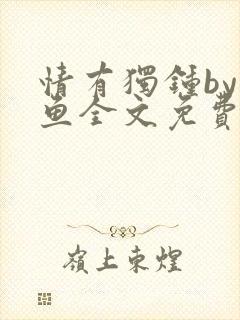 情有獨鍾by
魚全文免費
嶺上東煌